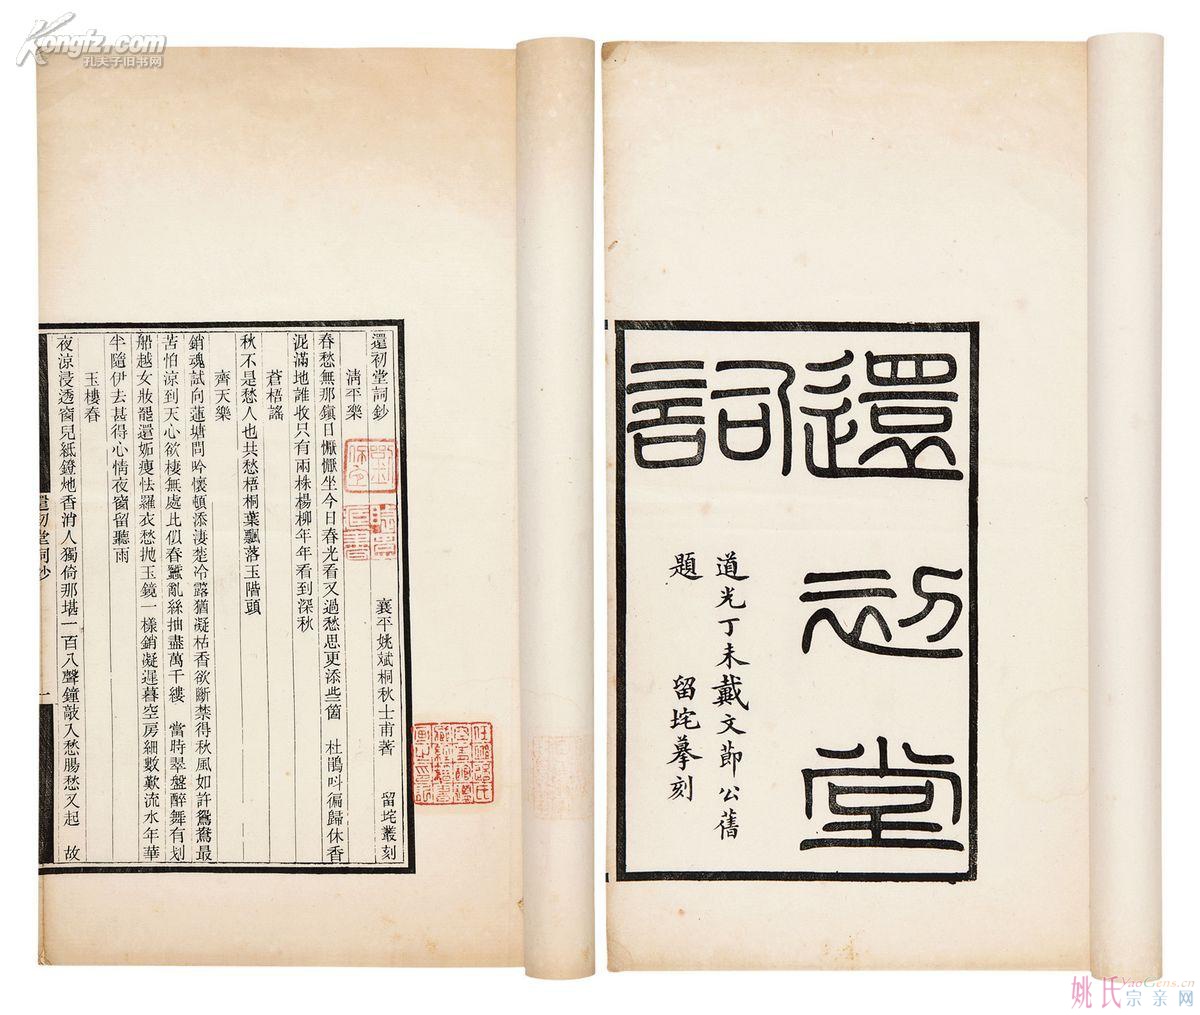 還初堂
詞
道光丁未戴文節公舊
題
留垞摹刻
還初堂詞鈔
襄平姚斌桐秋士甫著
留垞叢刻
清平樂
春愁無那鎮日懨懨坐今日春光看又過愁思更添些箇　杜鵑呌徧歸休香
泥滿地誰收只有兩株楊柳年年看到深秋
蒼梧謠
秋不是愁人也共愁梧桐葉飄落玉階頭
齊天樂
銷魂試向蓮塘問吟懷頓添淒楚冷露猶凝枯香欲斷禁得秋風如許鴛鴦最
苦怕涼到天心欲棲無處比似春蠶亂絲抽盡萬千縷　當時翠盤醉舞有划
船越女妝罷還妬瘦怯羅衣愁拋玉鏡一樣銷凝遲暮空房細數歎流水年華
半隨伊去甚得心情夜窗留聽雨
玉樓春
夜涼浸透窗兒紙鐙灺香消人獨倚那堪一百八聲鐘敲入愁腸愁又起　故
還初堂詞鈔
一
Kongfz.com
孔夫子旧书网
姚氏宗亲网
YaoGens.cn